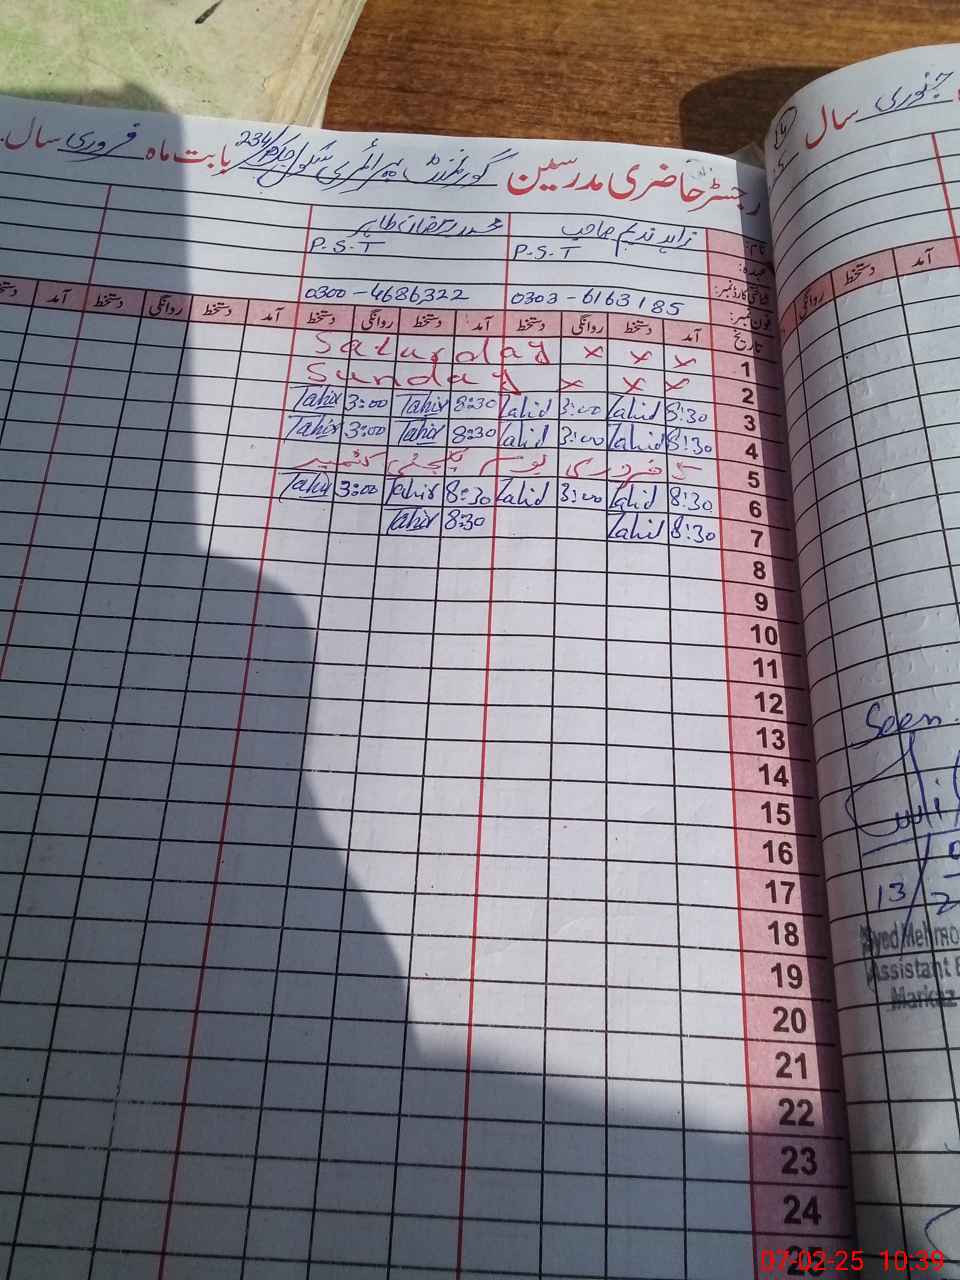 رجسٹر حاضری مدرسین گورنمنٹ پرائمری سکول چک 234 بابت ماہ فروری سال
نام: زاہد ندیم صاحب محمد رمضان طاہر
عہدہ: P.S.T P.S.T
شناختی کارڈ نمبر:
فون نمبر: 0303-6163185 0300-4686322
تاریخ آمد دستخط روانگی دستخط آمد دستخط روانگی دستخط آمد دستخط روانگی دستخط آمد
1 Saturday × × ×
2 Sunday × × ×
3 8:30 Zahid 3:00 Zahid 8:30 Tahir 3:00 Tahir
4 8:30 Zahid 3:00 Zahid 8:30 Tahir 3:00 Tahir
5 5 فروری یوم یکجہتی کشمیر
6 8:30 Zahid 3:00 Zahid 8:30 Tahir 3:00 Tahir
7 8:30 Zahid 8:30 Tahir
8
9
10
11
12
13
14
15
16
17
18
19
20
21
22
23
24
25
سال جنوری
روانگی دستخط آمد
Seen
13
Syed Mehmo
Assistant E
Markaz
07-02-25 10:39